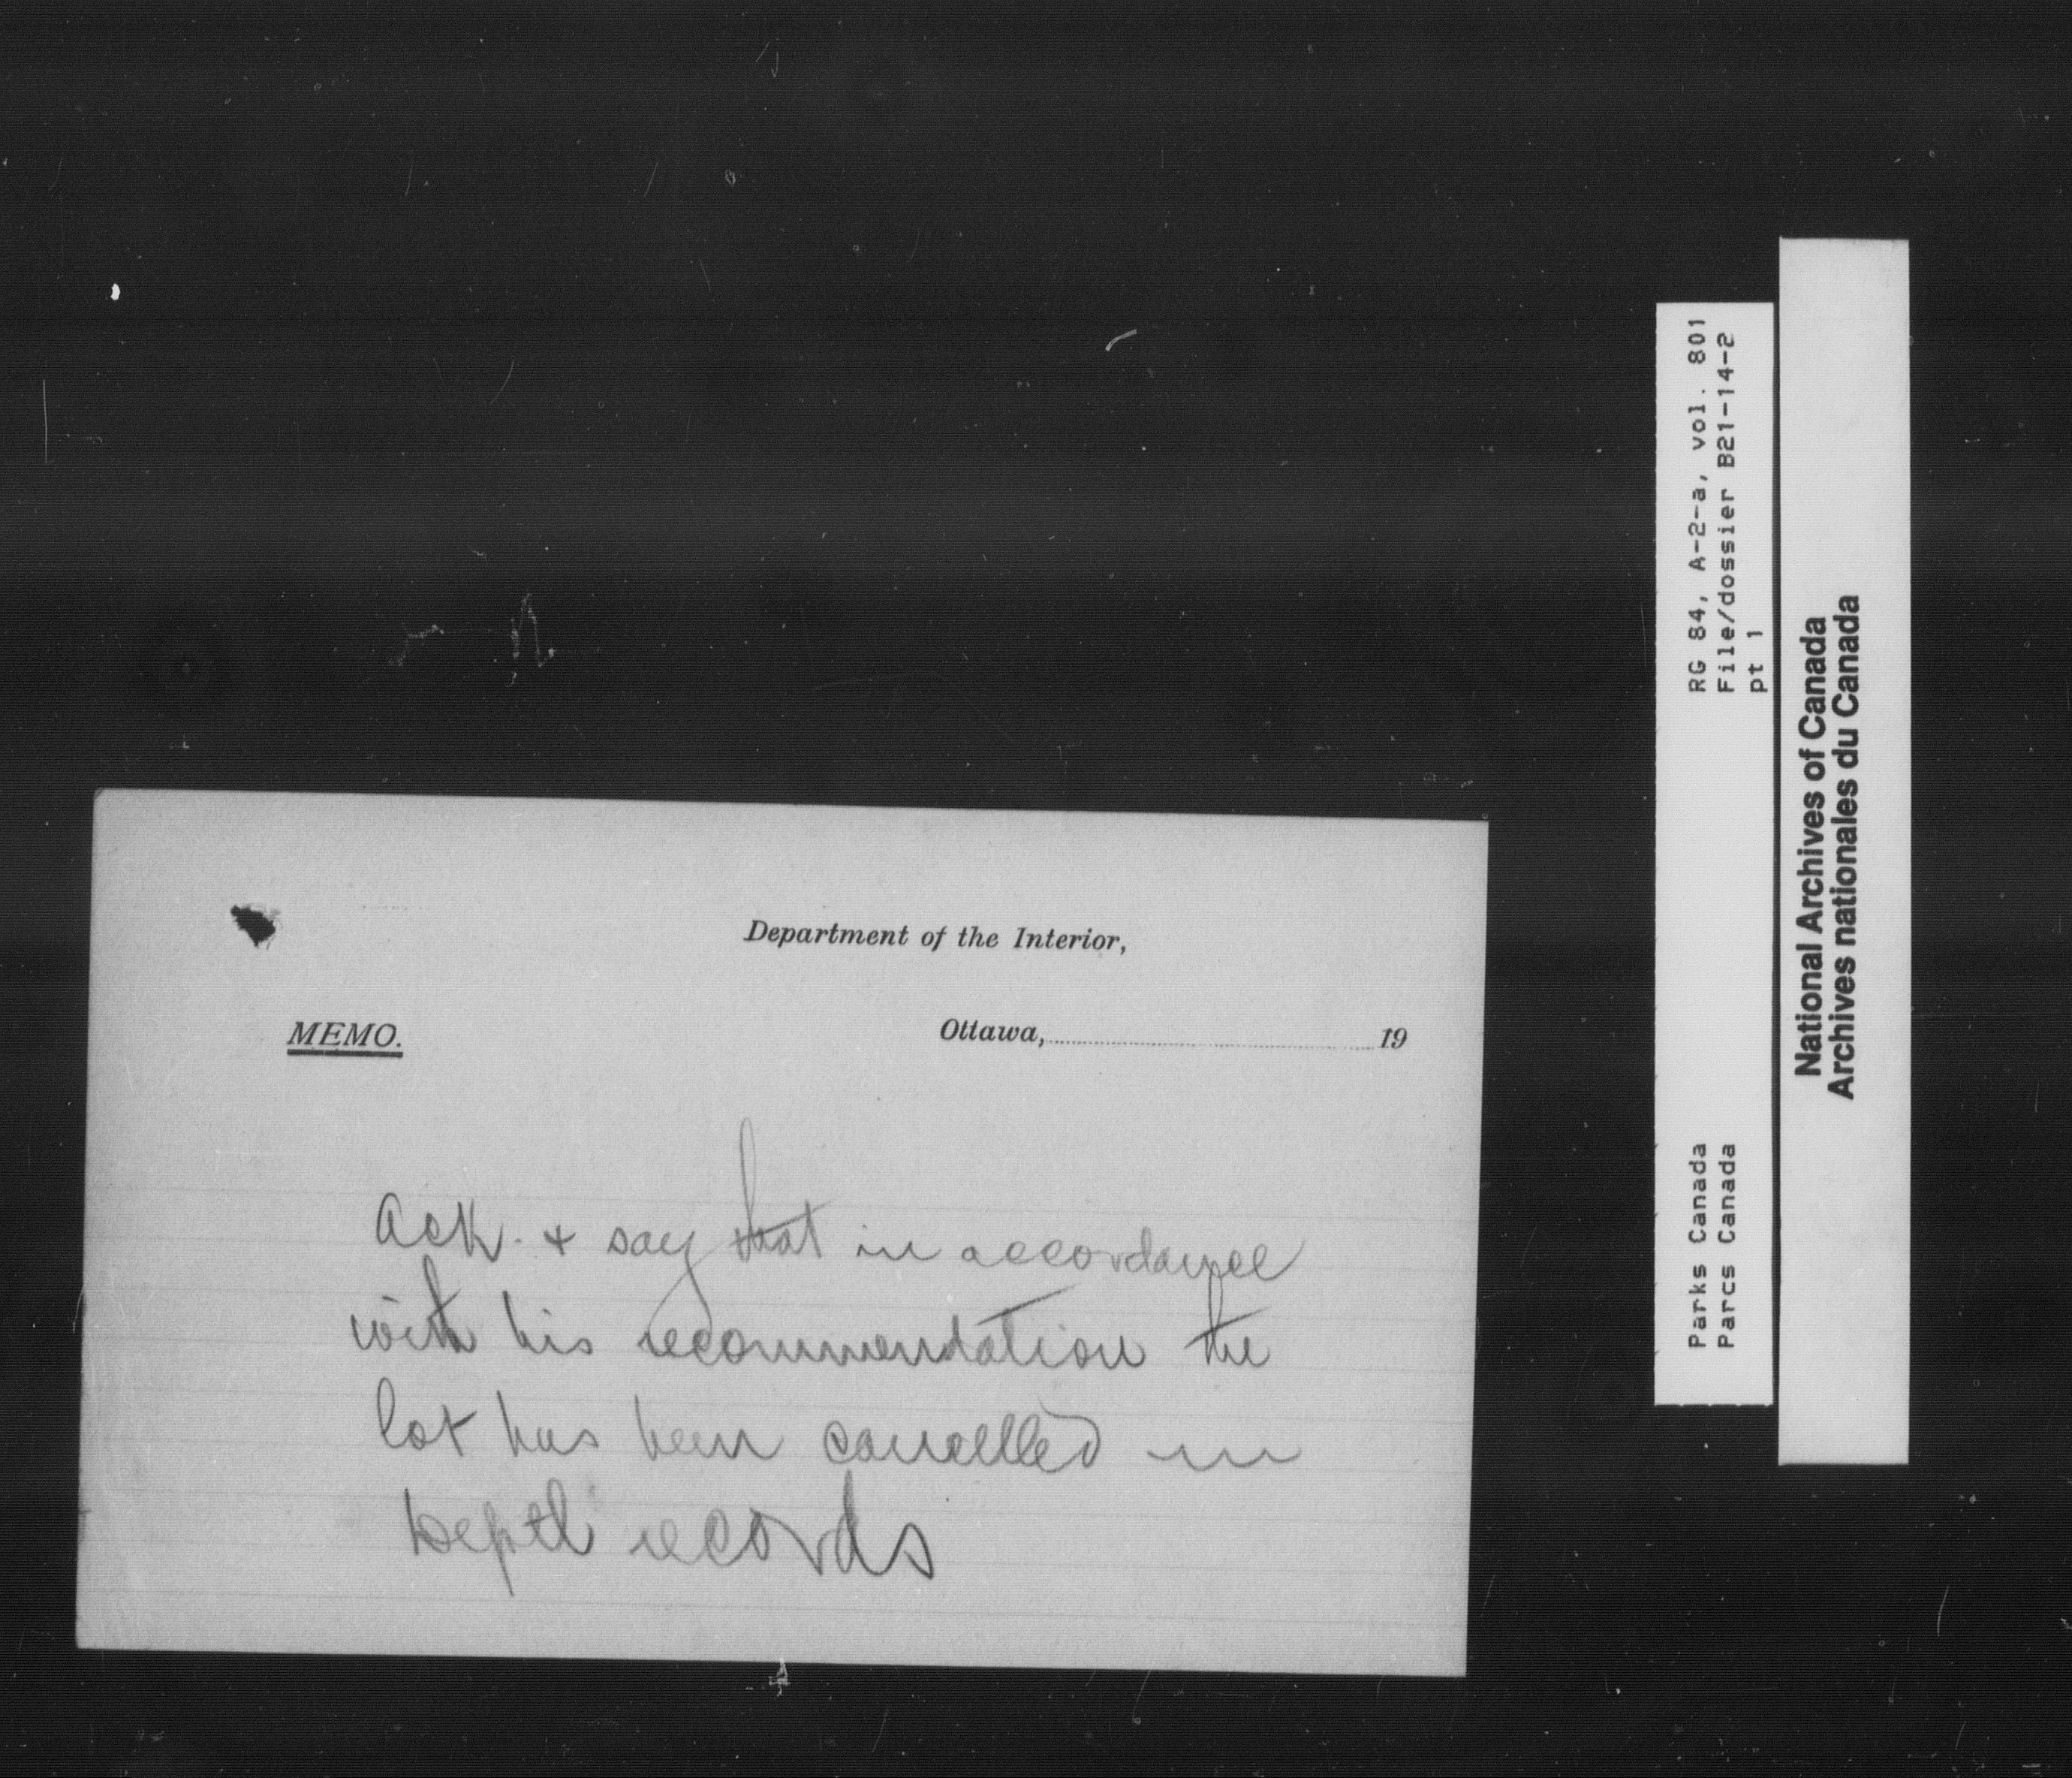 Department of the Interior,
MEMO.
Ottawa,..............................19
Ack. + say that in accordance
with his recommendation the
lot has been cancelled in
Deptl records
RG 84, A-2-a, vol. 801
File/dossier B21-14-2
pt 1
Parks Canada
Parcs Canada
National Archives of Canada
Archives nationales du Canada